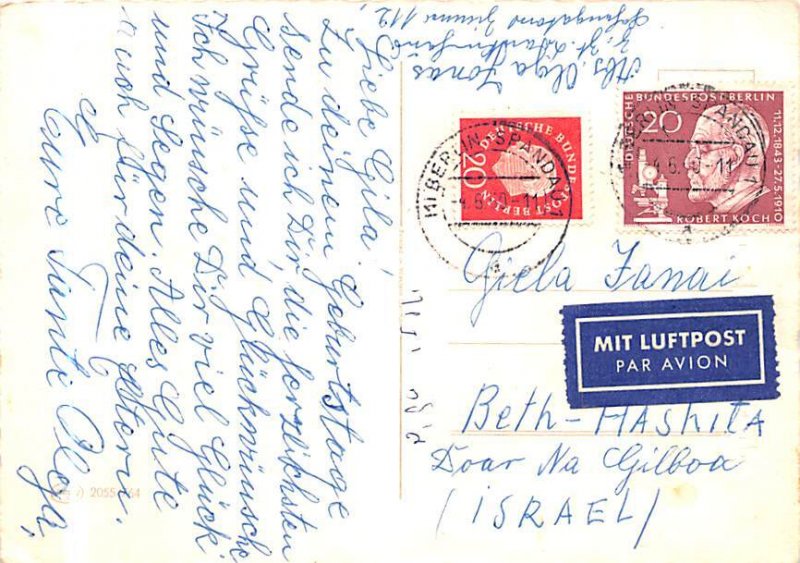 Liebe Gila!
Zu deinem Geburtstage
sende ich Dir, die herzlichsten
Grüße und Glückwünsche
Ich wünsche Dir viel Glück
und Segen. Alles Gute
auch für deine Eltern.
Eure Tante Olga,
Abs. Olga Jonas
112,
DEUTSCHE BUNDESPOST BERLIN
20
BERLIN-SPANDAU 1
DEUTSCHE BUNDESPOST BERLIN
20
11.12.1843-27.5.1910
ROBERT KOCH
Giela Janai
MIT LUFTPOST
PAR AVION
Beth-Hashita
Doar Na Gilboa
(ISRAEL)
2055/164